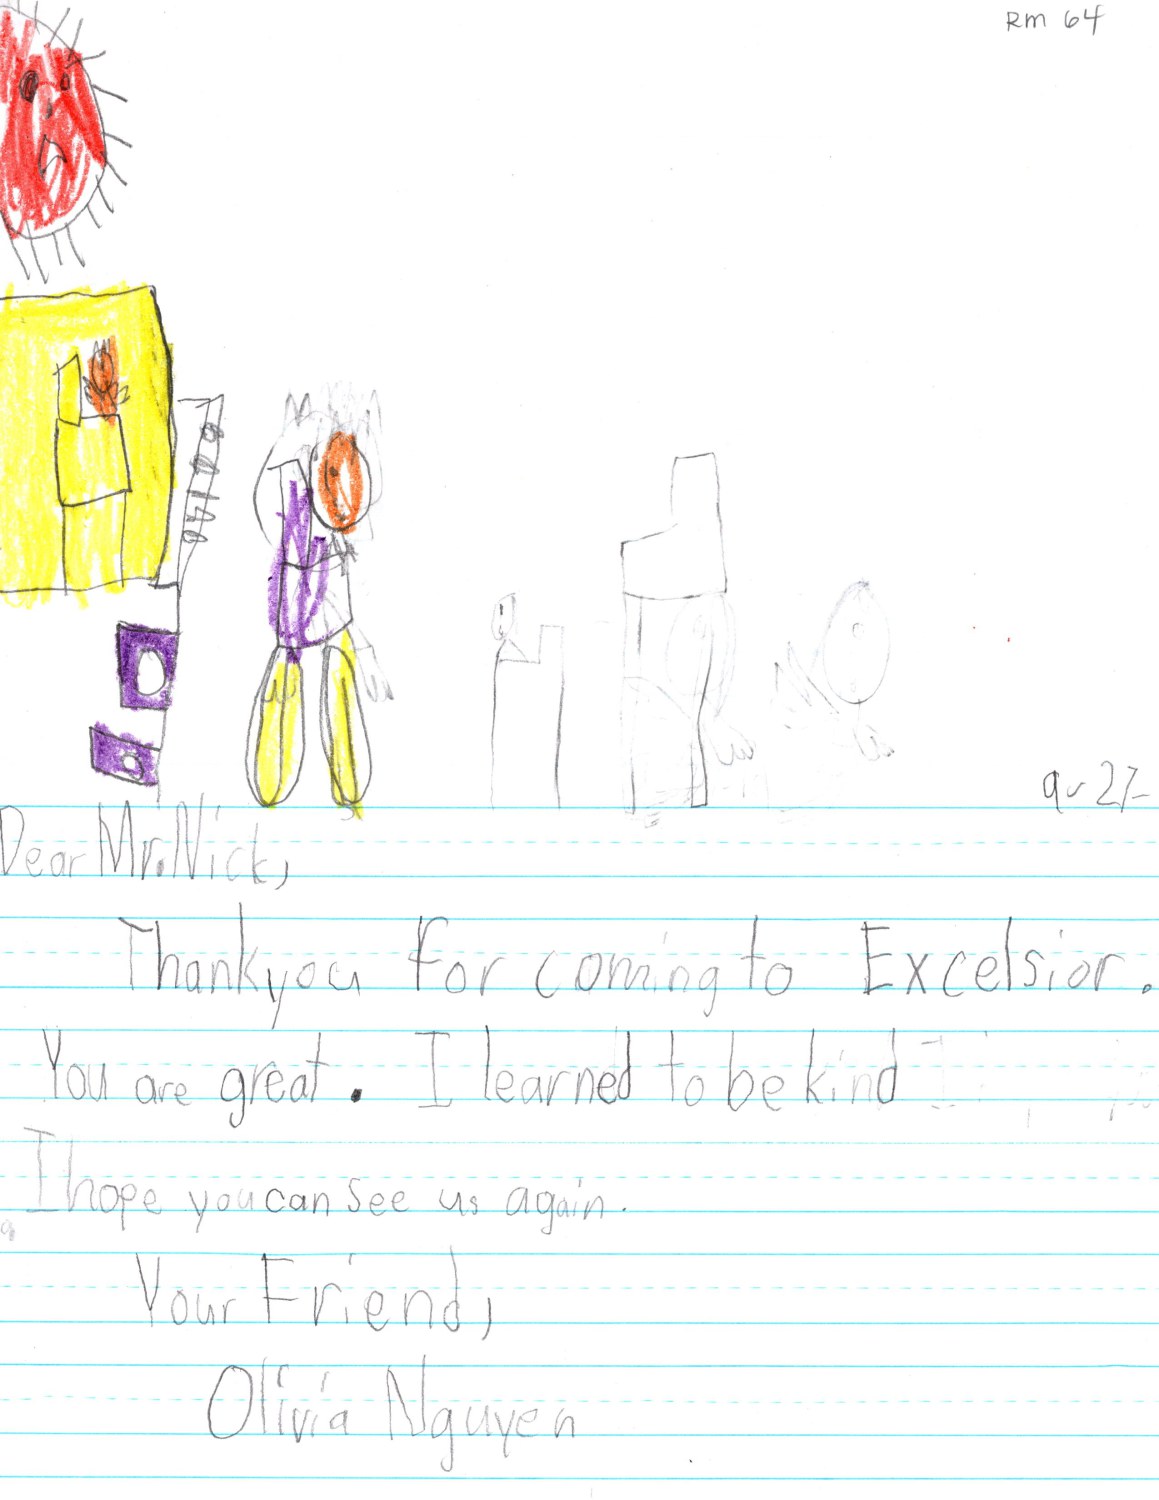 Rm 64
Dear Mr. Nick,
Thankyou for coming to Excelsior.
You are great. I learned to be kind
I hope you can see us again.
Your Friend,
Olivia Nguyen